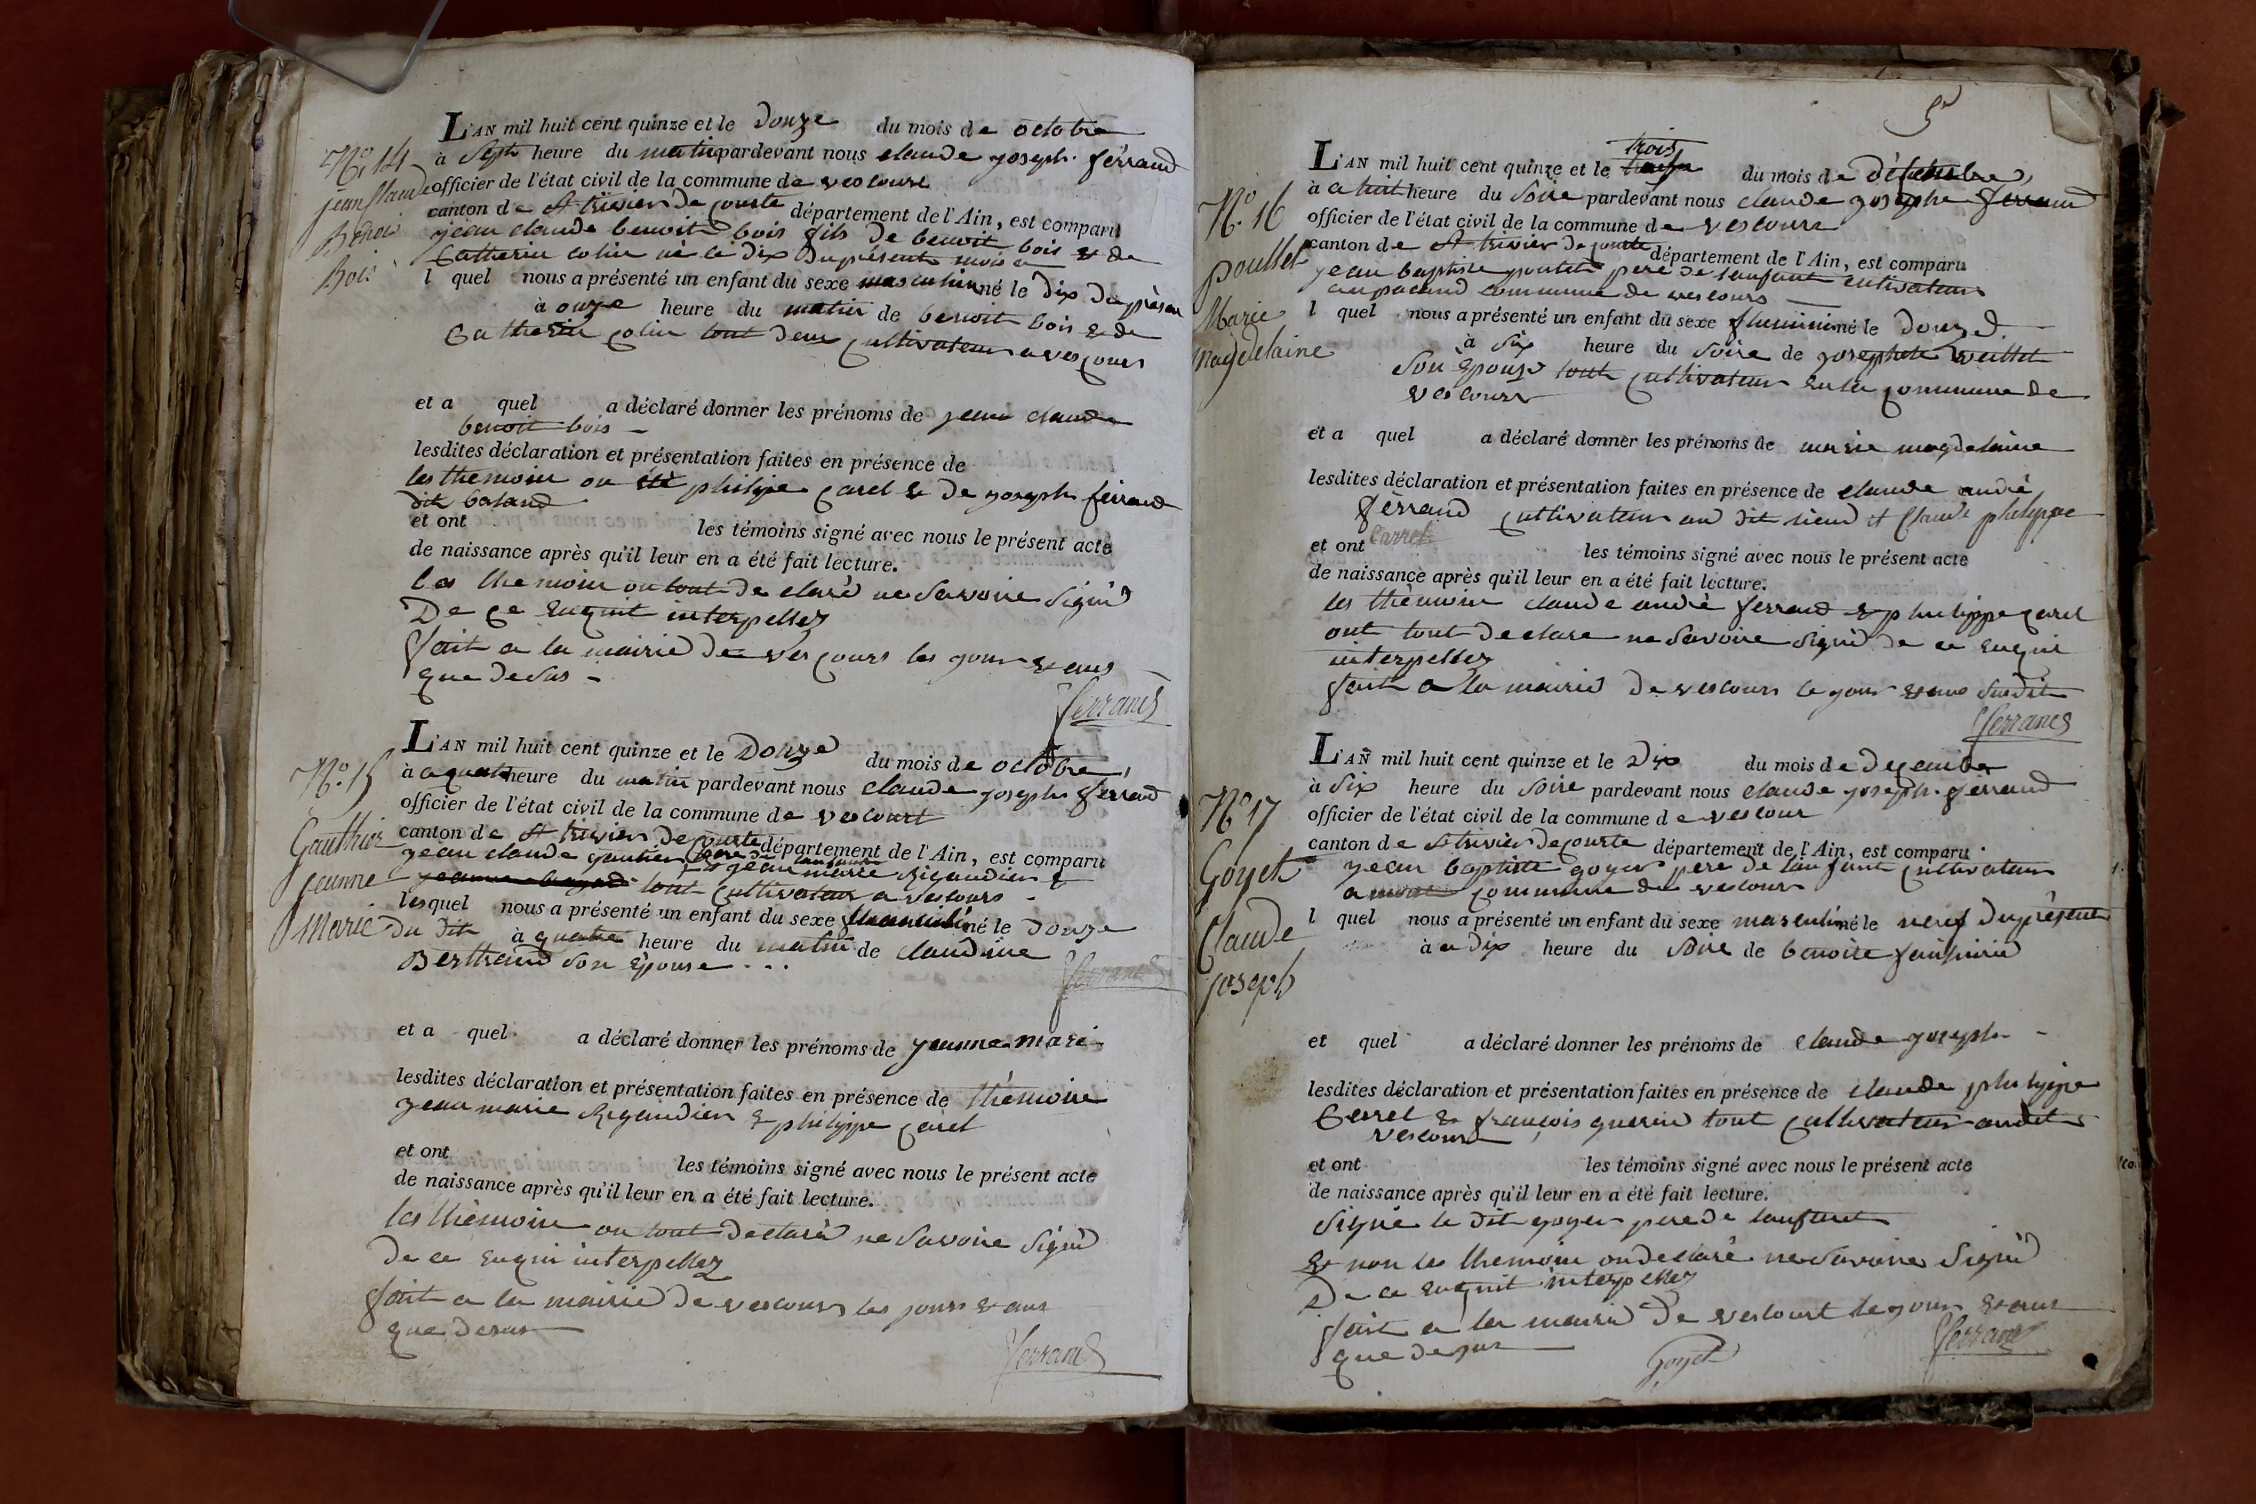 L'AN mil huit cent quinze et le Douze du mois de octobre
N.º 14 à Sept heure du matin pardevant nous claude joseph ferrand
jean Claude officier de l'état civil de la commune de vescours
canton de St trivier De courte département de l'Ain, est comparu
Benoi jean claude benoit bois fils de benoit bois & de
Catherin colin né le dix Du présent mois
Bois l quel nous a présenté un enfant du sexe masculin né le Dix Du présan
à onze heure du matin de benoit bois & de
Catherin colin tout deux cultivateur a vescours
et a quel a déclaré donner les prénoms de jean claude
benoit bois -
lesdites déclaration et présentation faites en présence de
les themoin on été philipe carel & De joseph ferrand
dit baland
et ont les témoins signé avec nous le présent acte
de naissance après qu'il leur en a été fait lecture.
les themoin on tout De claré ne Savoire Signé
De ce Enquit interpellez
fait a la mairie De vescours les jour & ans
que De sus -
ferrand
L'AN mil huit cent quinze et le Douze du mois de octobre
N.º 15 à a quatre heure du matin pardevant nous claude joseph ferrand
officier de l'état civil de la commune de vescourt
Gauthier canton de St trivier De courte département de l'Ain, est comparu
jean claude gautier pere De lanfant & jean marie Rigaudier &
jeanne tout cultivateur a vescours -
lesquel nous a présenté un enfant du sexe né le Douze
Marie du dit à quatre heure du matin de claudine
Berthrand Son Epouse ...
ferrand
et a quel a déclaré donner les prénoms de jeanne mari -
lesdites déclaration et présentation faites en présence de thémoin
jean marie Rigaudier & philippe carel
et ont les témoins signé avec nous le présent acte
de naissance après qu'il leur en a été fait lecture.
les thémoin on tout Declaré ne Savoire Signé
De ce Enqui interpellez
fait a la mairie De vescours les jours & ans
que Desus
ferrand
5
trois
L'AN mil huit cent quinze et le du mois de Décembre
N.º 16 à a huit heure du Soire pardevant nous claude josephe ferrand
officier de l'état civil de la commune de vescours
canton de St trivier De courte département de l'Ain, est comparu
poullet jean baptiste poulet pere De lanfant cultivateur
commune de vescours
Marie l quel nous a présenté un enfant du sexe fheminin né le Douze
magdelaine à Six heure du Soire de josephete
Son Epouse tout cultivateur En la commune De
vescours
et a quel a déclaré donner les prénoms de marie magdelaine
lesdites déclaration et présentation faites en présence de claude andré
ferrand cultivateur au dit lieud et Claude philippe
et ont Carrel les témoins signé avec nous le présent acte
de naissance après qu'il leur en a été fait lecture.
les thémoin claude andré ferrand & philippe carel
ont tout Declare ne Savoire Signé De ce Enqui
interpellez
fait a la mairie De vescours le jour & ans Susdit
ferrand
L'AN mil huit cent quinze et le Dix du mois de Decembre
N.º 17 à Six heure du Soire pardevant nous claude joseph ferrand
officier de l'état civil de la commune de vescour
canton de St trivier De courte département de l'Ain, est comparu
Goyet jean baptiste goyer pere De lanfant cultivateur
a commune de vescours
l quel nous a présenté un enfant du sexe masculin né le neuf Du présent
Claude à a dix heure du Soire de benoite
joseph
et quel a déclaré donner les prénoms de claude joseph -
lesdites déclaration et présentation faites en présence de claude philippe
Carrel & françois guerin tout cultivateur audit
vescours
et ont les témoins signé avec nous le présent acte
de naissance après qu'il leur en a été fait lecture.
Signé le dit goyer pere De lanfant
& non les themoin on declaré ne Savoire Signé
De ce Enquit interpellez
fait a la mairie De vescourt le jour & ans
que Desus
Goyet ferrand